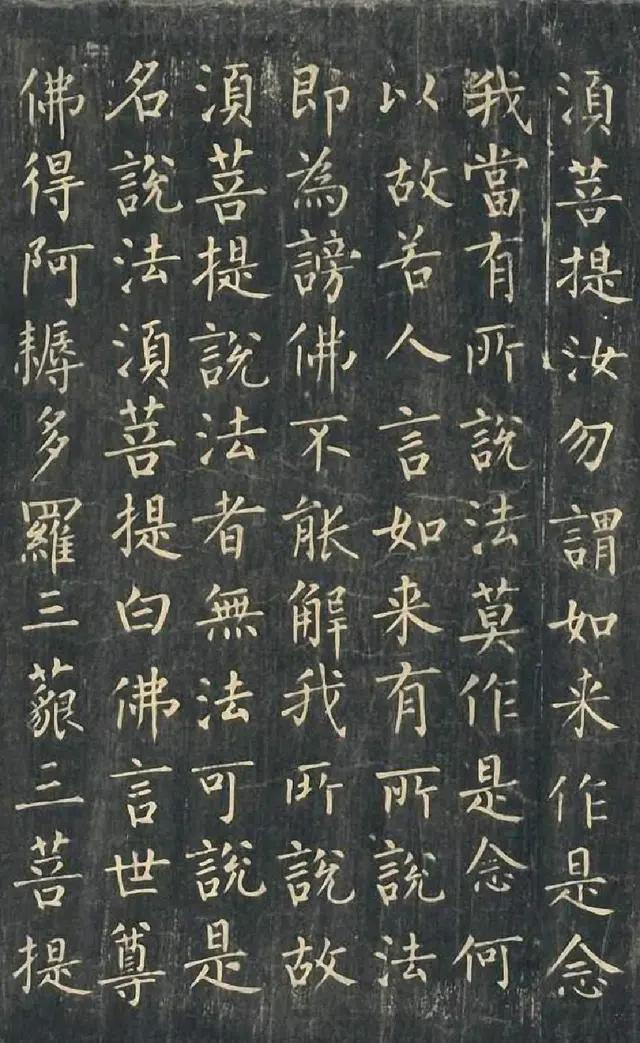 須菩提汝勿謂如来作是念
我當有所說法莫作是念何
以故若人言如来有所說法
即為謗佛不能解我所說故
須菩提說法者無法可說是
名說法須菩提白佛言世尊
佛得阿耨多羅三藐三菩提